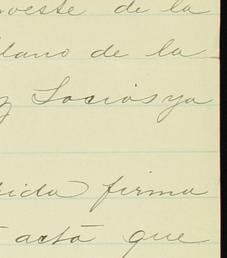 oeste de la
llano de la
z Sociosya
rida firma
acta que